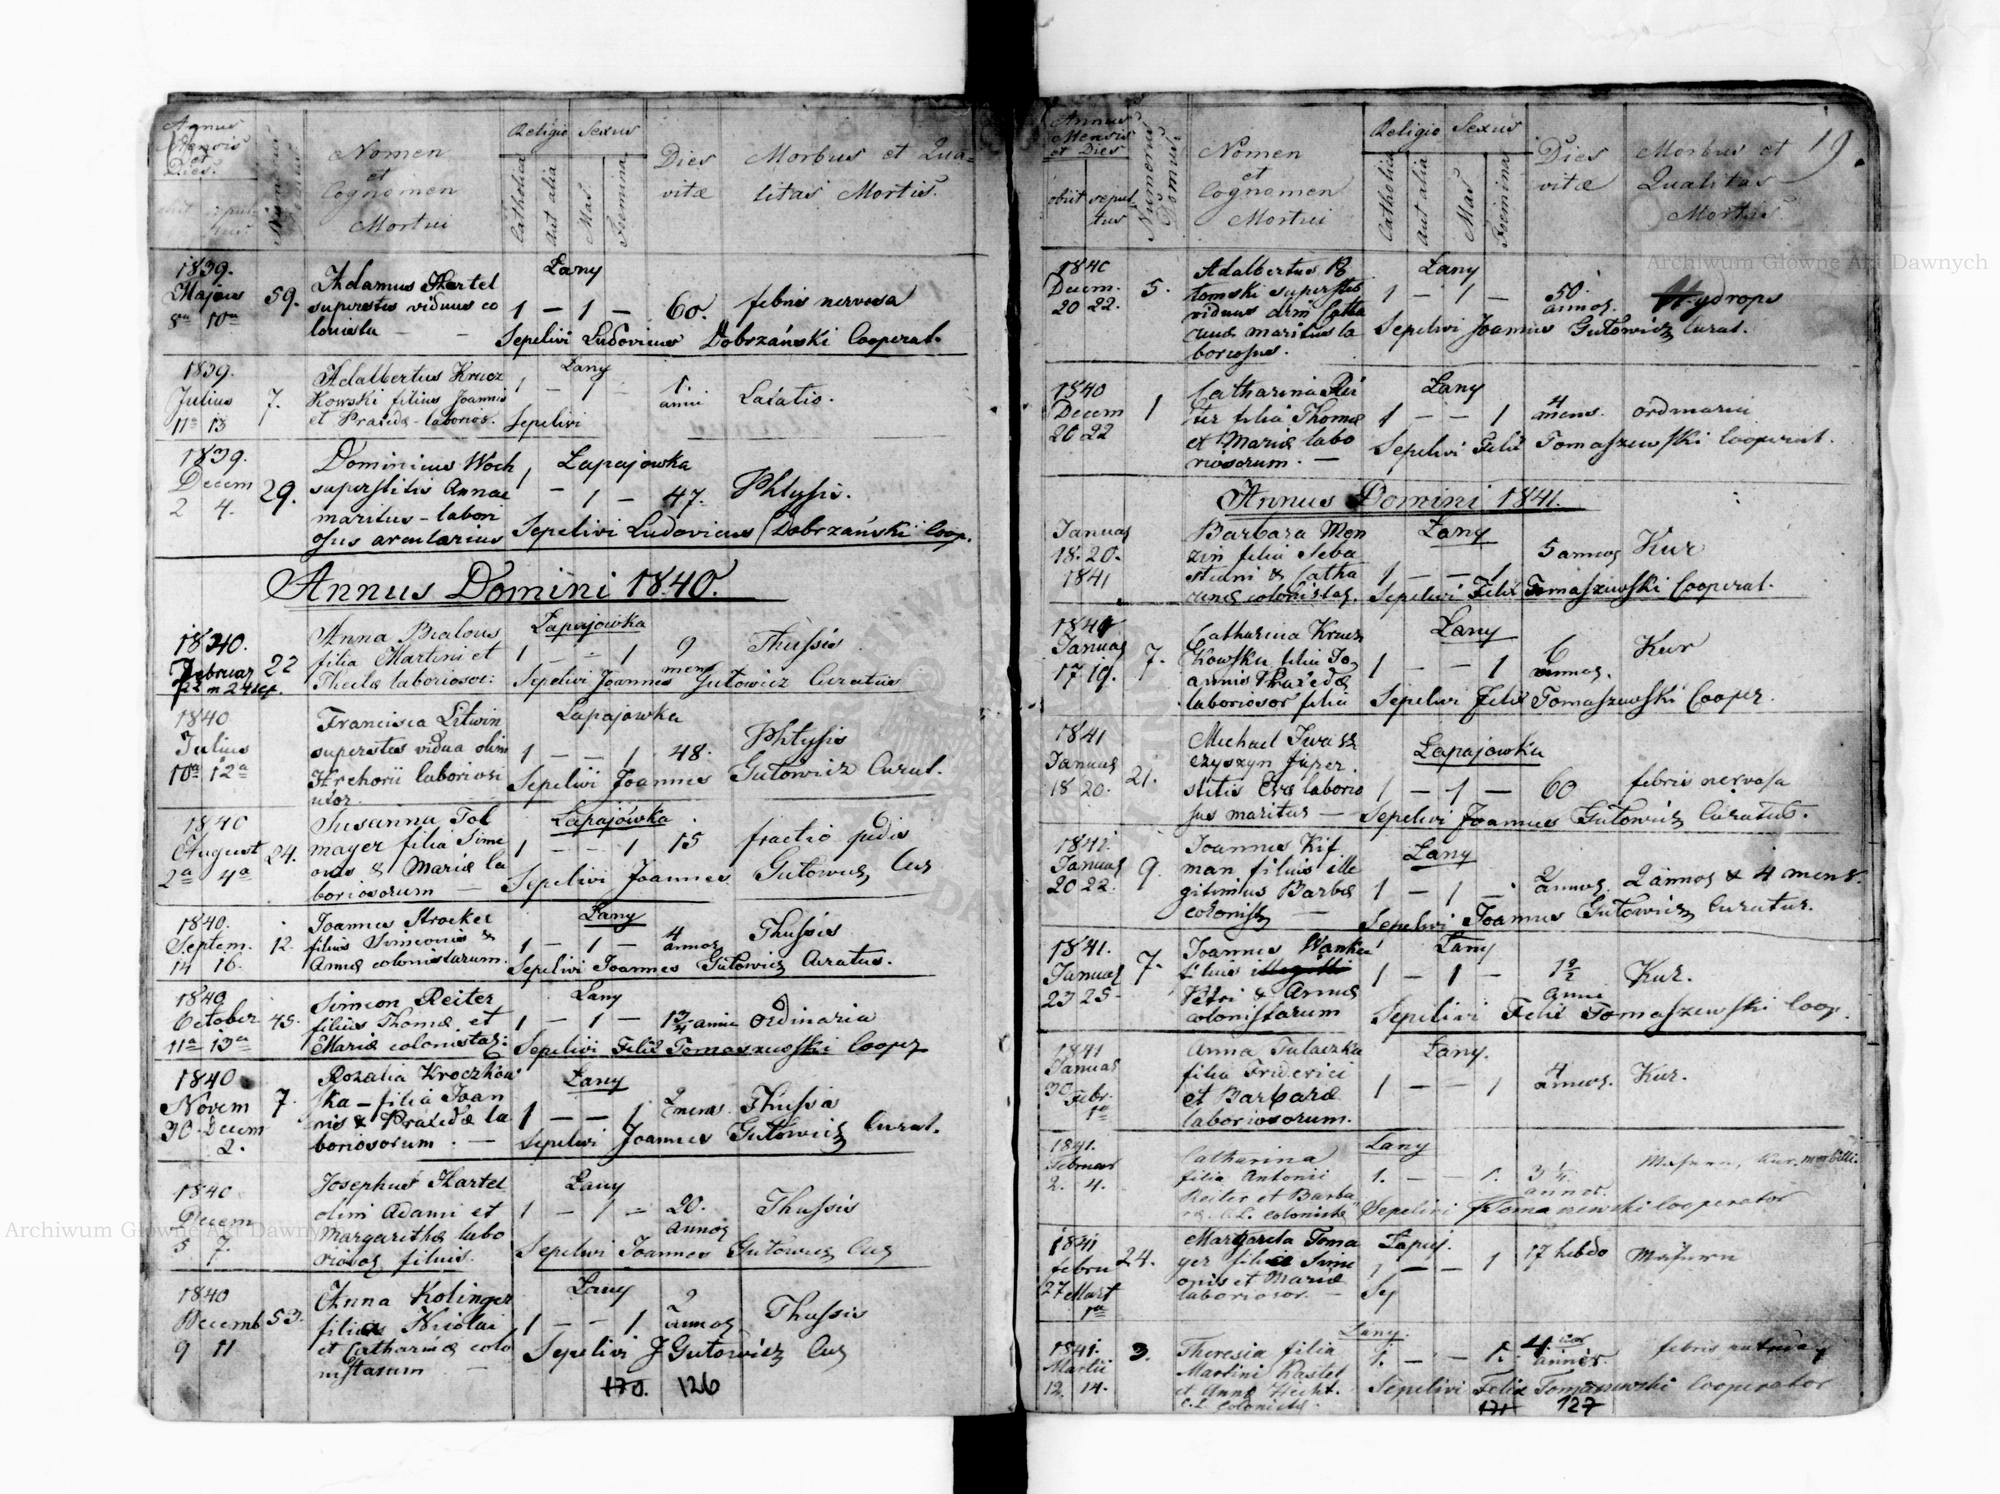 Annus
Mensis
et
Dies.
Numerus
Nomen
et
Cognomen
Mortui
Religio Sexus
Catholica
Aut alia
Mas
Foemina
Dies
vitæ
Morbus et Qua-
litas Mortis.
1839.
Majus
8va 10ma
59.
Adamus Hartel
superstes viduus co
lonista - -
Łany
1 - 1 - 60. febris nervosa
Sepelivi Ludovicus Dobrzański Cooperat.
1839.
Julius
11a 13
7.
Adalbertus Krucz
kowski filius Joannis
et Praxedæ - laborios.
Łany
1 - 1 -
1.
anni
Sepelivi
1839.
Decem
2 4.
29.
Dominicus Woch
superstitis Annae
maritus - labori
osus arcularius
Łapajowka
1 - 1 - 47. Phtysis.
Sepelivi Ludovicus Dobrzański Coop.
Annus Domini 1840.
1840.
Februar
22
Anna
filia Martini et
Theclæ laborioso:
Łapajówka
1 - - 1 9
mens
Thussis
Sepelivi Joannes Gutowicz Curatus
1840
Julius
10a 12a
Francisca Litwin
superstes vidua olim
Hrehorii laboriosi
uxor.
Łapajowka
1 - - 1 48. Phtysis
Sepelii Joannes Gutowicz Curat.
1840
August
2a 4a
24.
Susanna Tol
mayer filia Sime
onis & Mariæ la
boriosorum -
Łapajówka
1 - - 1 15 fractio pedis
Sepelivi Joannes Gutowicz Cur
1840.
Septem.
14 16.
12.
Joannes Strocker
filius Simeonis &
Annæ colonistarum.
Łany
1 - 1 - 4
annos
Thussis
Sepelivi Joannes Gutowicz Curatus.
1840
October
11a 13a
45.
Simeon Reiter
filius Thomæ et
Mariæ colonistar:
Łany
1 - 1 - 1 3/4 anni ordinaria
Sepelivi Felix Tomaszewski Cooper
1840
Novem
30 Decem
2.
7.
Rozalia Kroczkow
ska - filia Joan
nis & Praxedæ la
boriosorum. -
Łany
1 - - 1 2
mens. Thussis
Sepelivi Joannes Gutowicz Curat.
1840
Decem
5 7.
Josephus Hartel
olim Adami et
Margarithæ labo
rios filius.
Łany
1 - 1 - 20.
annos
Thussis
Sepelivi Joannes Gutowicz Cur
1840
Decemb
9 11
53.
Anna Kolinger
filia Nicolai
et Catharinæ colo
nistarum -
Łany
1 - - 1 2
annos
Thussis
Sepelivi J Gutowicz Cur
170. 126
19.
Annus
Mensis
et Dies
obiit sepul
tus
Numerus
Domus
Nomen
et
Cognomen
Mortui
Religio Sexus
Catholica
Aut alia
Mas
Foemina
Dies
vitæ
Morbus et
Qualitas
Mortis.
1840
Decem.
20 22.
5.
Adalbertus
tomski superstes
viduus olim Catha
rinæ maritus la
boriosus.
Łany
1 - 1 - 50
annos.
Hydrops
Sepelivi Joannes Gutowicz Curat.
1840
Decem
20 22
1
Catharina Rei
ter filia Thomæ
et Mariæ labo
riosorum. -
Łany
1 - - 1 4
mens. ordinaria
Sepelivi Felix Tomaszewski Cooperat.
Annus Domini 1841.
Januar
18. 20.
1841
Barbara Mon
zin filia Seba
stiani & Catha
rinæ colonistar.
Łany
1 - - 1 5 annos Kur
Sepelivi Felix Tomaszewski Cooperat.
1841
Januar
17 19.
7.
Catharina Krucz
kowska filia Jo
annis Praxedæ
laboriosor filia
Łany
1 - - 1 6
annos.
Kur
Sepelivi Felix Tomaszewski Cooper.
1841
Januar
18 20.
21.
Michael Iwasz
czyszyn super
stitis Evæ laborio
sus maritus -
Łapajówka
1 - 1 - 60 febris nervosa
Sepelivi Joannes Gutowicz Curatus.
1841.
Januar
20 22.
9.
Joannes Kif
man filius ille
gitimus Barbæ
colonist -
Łany
1 - 1 - 2
annos. 2 annos & 4 mens.
Sepelivi Joannes Gutowicz Curatus.
1841.
Januar
23 25-
7.
Joannes Wanke
filius
Petri & Annæ
colonistarum
Łany
1 - 1 -
anni
Kur.
Sepelivi Felix Tomaszewski Coop.
1841
Januar
30 Febr.
1a
Anna Tulaczka
filia Friderici
et Barbaræ
laboriosorum.
Łany.
1 - - 1 4
annos. Kur.
1841.
Februar
2. 4.
Catharina
filia Antonii
Reiter et Barba
ræ C. L. coloniste
Łany
1. - - 1. 3 1/2
annor.
Masern, Kur, morbilli.
Sepelivi F Tomaszewski cooperator
1841
Febru
27 Mart
1a
24.
Margarela Toma
yer filia Sime
onis et Mariæ
laboriosor. -
Łapaj.
1 - - 1 17 hebdo Masern
Sep
1841.
Martii
12. 14.
3.
Theresia filia
Martini Rastel
et Annæ Hecht.
C. L. Coloniste.
Łany.
1. - - 1. 4
annor.
febris
Sepelivi Felix Tomaszewski Cooperator
171 127
Archiwum Główne Akt Dawnych
Archiwum Główne Akt Dawnych